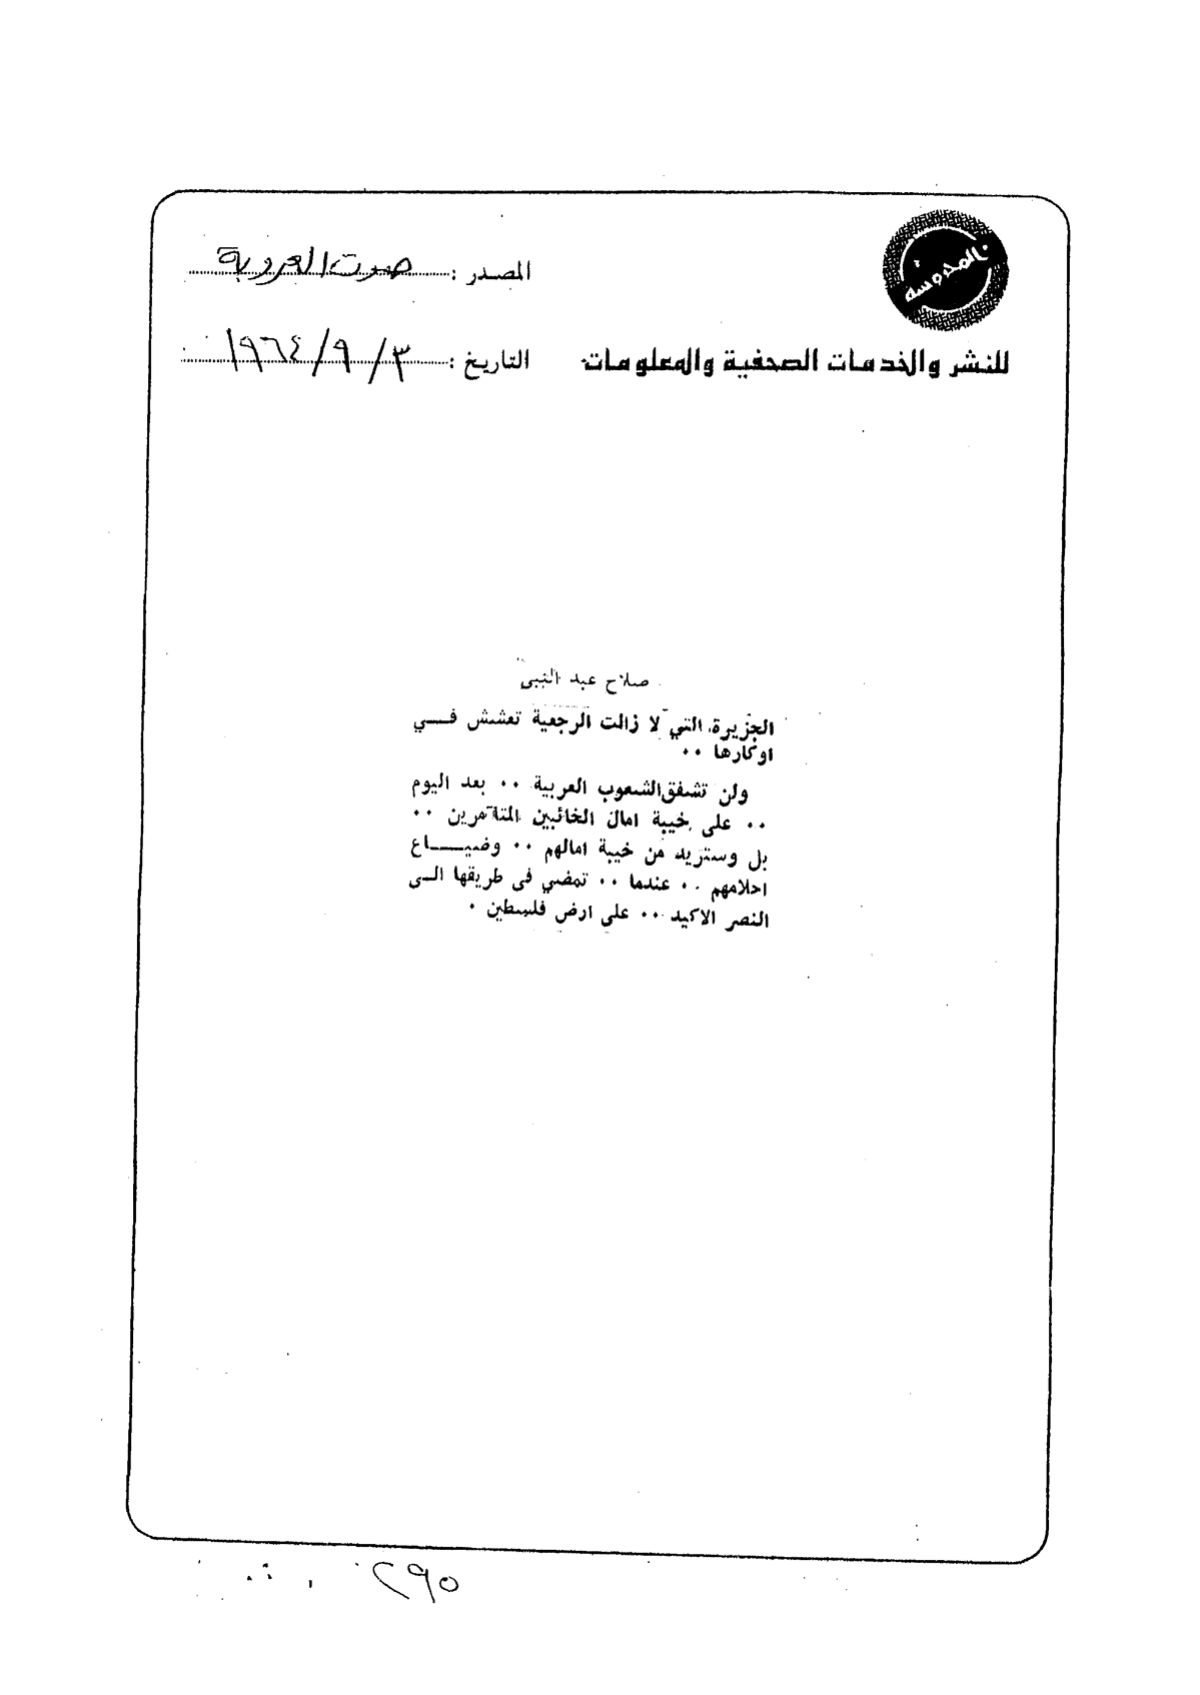 المحروسة
للنشر والخدمات الصحفية والمعلومات
المصدر : صوت العروبة
التاريخ : ٣/٩/١٩٦٤
صلاح عبد النبى
الجزيرة التي لا زالت الرجعية تعشش فــي
اوكارها ..
ولن تشفق الشعوب العربية .. بعد اليوم
.. على خيبة امال الخائبين المتآمرين ..
بل وستزيد من خيبة امالهم .. وضيـــاع
احلامهم .. عندما .. تمضي فى طريقها الـى
النصر الاكيد .. على ارض فلسطين .